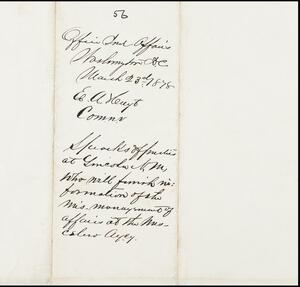 56
Office Ind Affairs
Washington DC
March 23rd 1878
E. A. Hayt
Comnr
Speaks of parties
at Lincoln N. M
who will furnish in-
formation of the
mis-management of
affairs at the Mes-
calero Agcy.